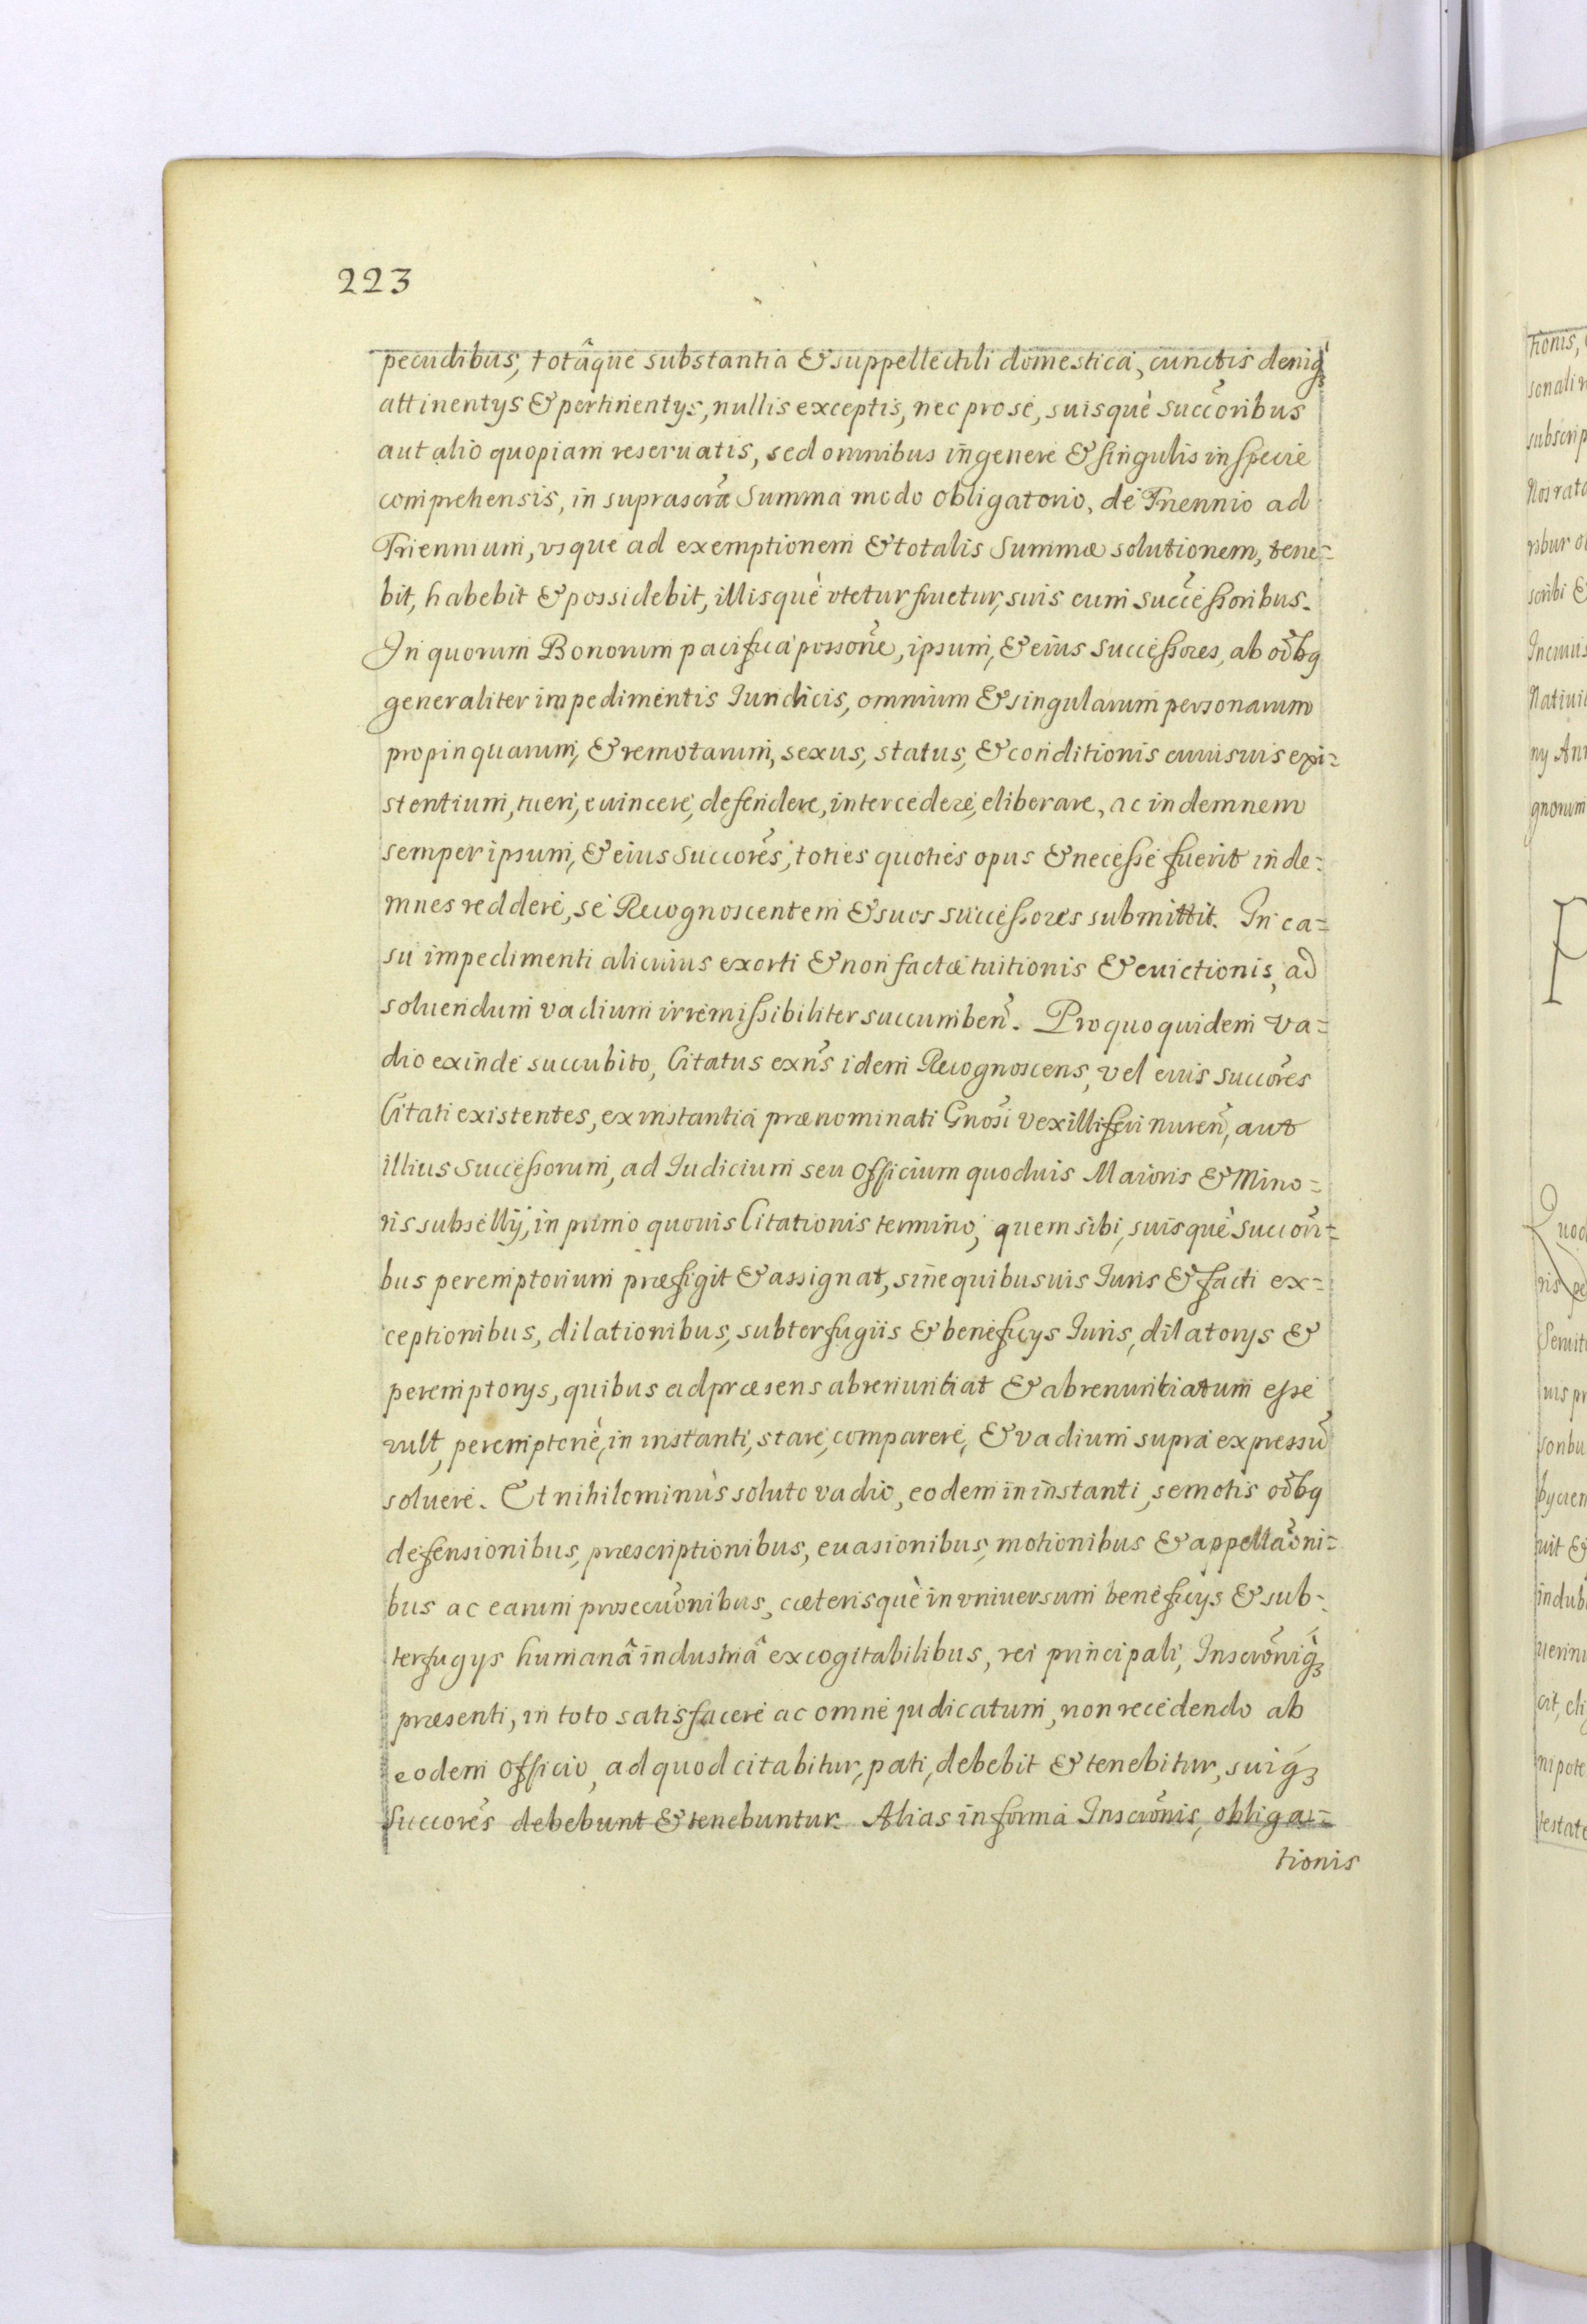 223
pecudibus, totâque substantia & suppellectili domestica, cunctis deniq́ꝫ
attinentys & pertinentys, nullis exceptis, nec pro se, suisquè succõribus
aut alio quopiam reseruatis, sed omnibus in genere & singulis in specie
comprehensis, in suprascrã Summa modo obligatorio, de Triennio ad
Triennium, vsque ad exemptionem & totalis Summæ solutionem, tene=
bit, habebit & possidebit, illisquè vtetur fruetur, suis cum successoribus.
In quorum Bonorum pacifica possoñe, ipsum, & eius successores, ab oĩbq
generaliter impedimentis Juridicis, omnium & singularum personarum
propinquarum, & remotarum, sexus, status, & conditionis cuiusuis exi=
stentium, tueri, euincere, defendere, intercedere, eliberare, ac indemnem
semper ipsum, & eius succorẽs, toties quoties opus & necesse fuerit inde=
mnes reddere, se Recognoscentem & suos successores submittit. In ca=
su impedimenti alicuius exorti & non factæ tuitionis & euictionis, ad
soluendum vadium irremissibiliter succumbeñ. Pro quo quidem va=
dio exinde succubito, Citatus exñs idem Recognoscens, vel eius succorẽs
Citati existentes, ex instantia prænominati Gnosĩ Vexilliferi nureñ, aut
illius Successorum, ad Judicium seu Officium quoduis Maioris & Mino=
ris subsellij, in primo quouis Citationis termino, quem sibi, suisquè succorĩ=
bus peremptorium præfigit & assignat, sine quibusuis Juris & facti ex=
ceptionibus, dilationibus, subterfugiis & beneficys Juris, dilatorys &
peremptorys, quibus ad præsens abrenuntiat & abrenuntiatum esse
vult, peremptoriè, in instanti, stare, comparere, & vadium supra expressũ
soluere. Et nihilominùs soluto vadio, eodem in instanti, semotis oĩbq
defensionibus, præscriptionibus, euasionibus, motionibus & appellaõni=
bus ac earum prosecuõnibus, cæterisquè in vniuersum beneficys & sub=
terfugys humanâ industriâ excogitabilibus, rei principali, Inscrõniq́ꝫ
præsenti, in toto satisfacere ac omne judicatum, non recedendo ab
eodem Officio, ad quod citabitur, pati, debebit & tenebitur, suiq́ꝫ
Succorẽs debebunt & tenebuntur. Alias in forma Inscrõnis, obliga=
tionis